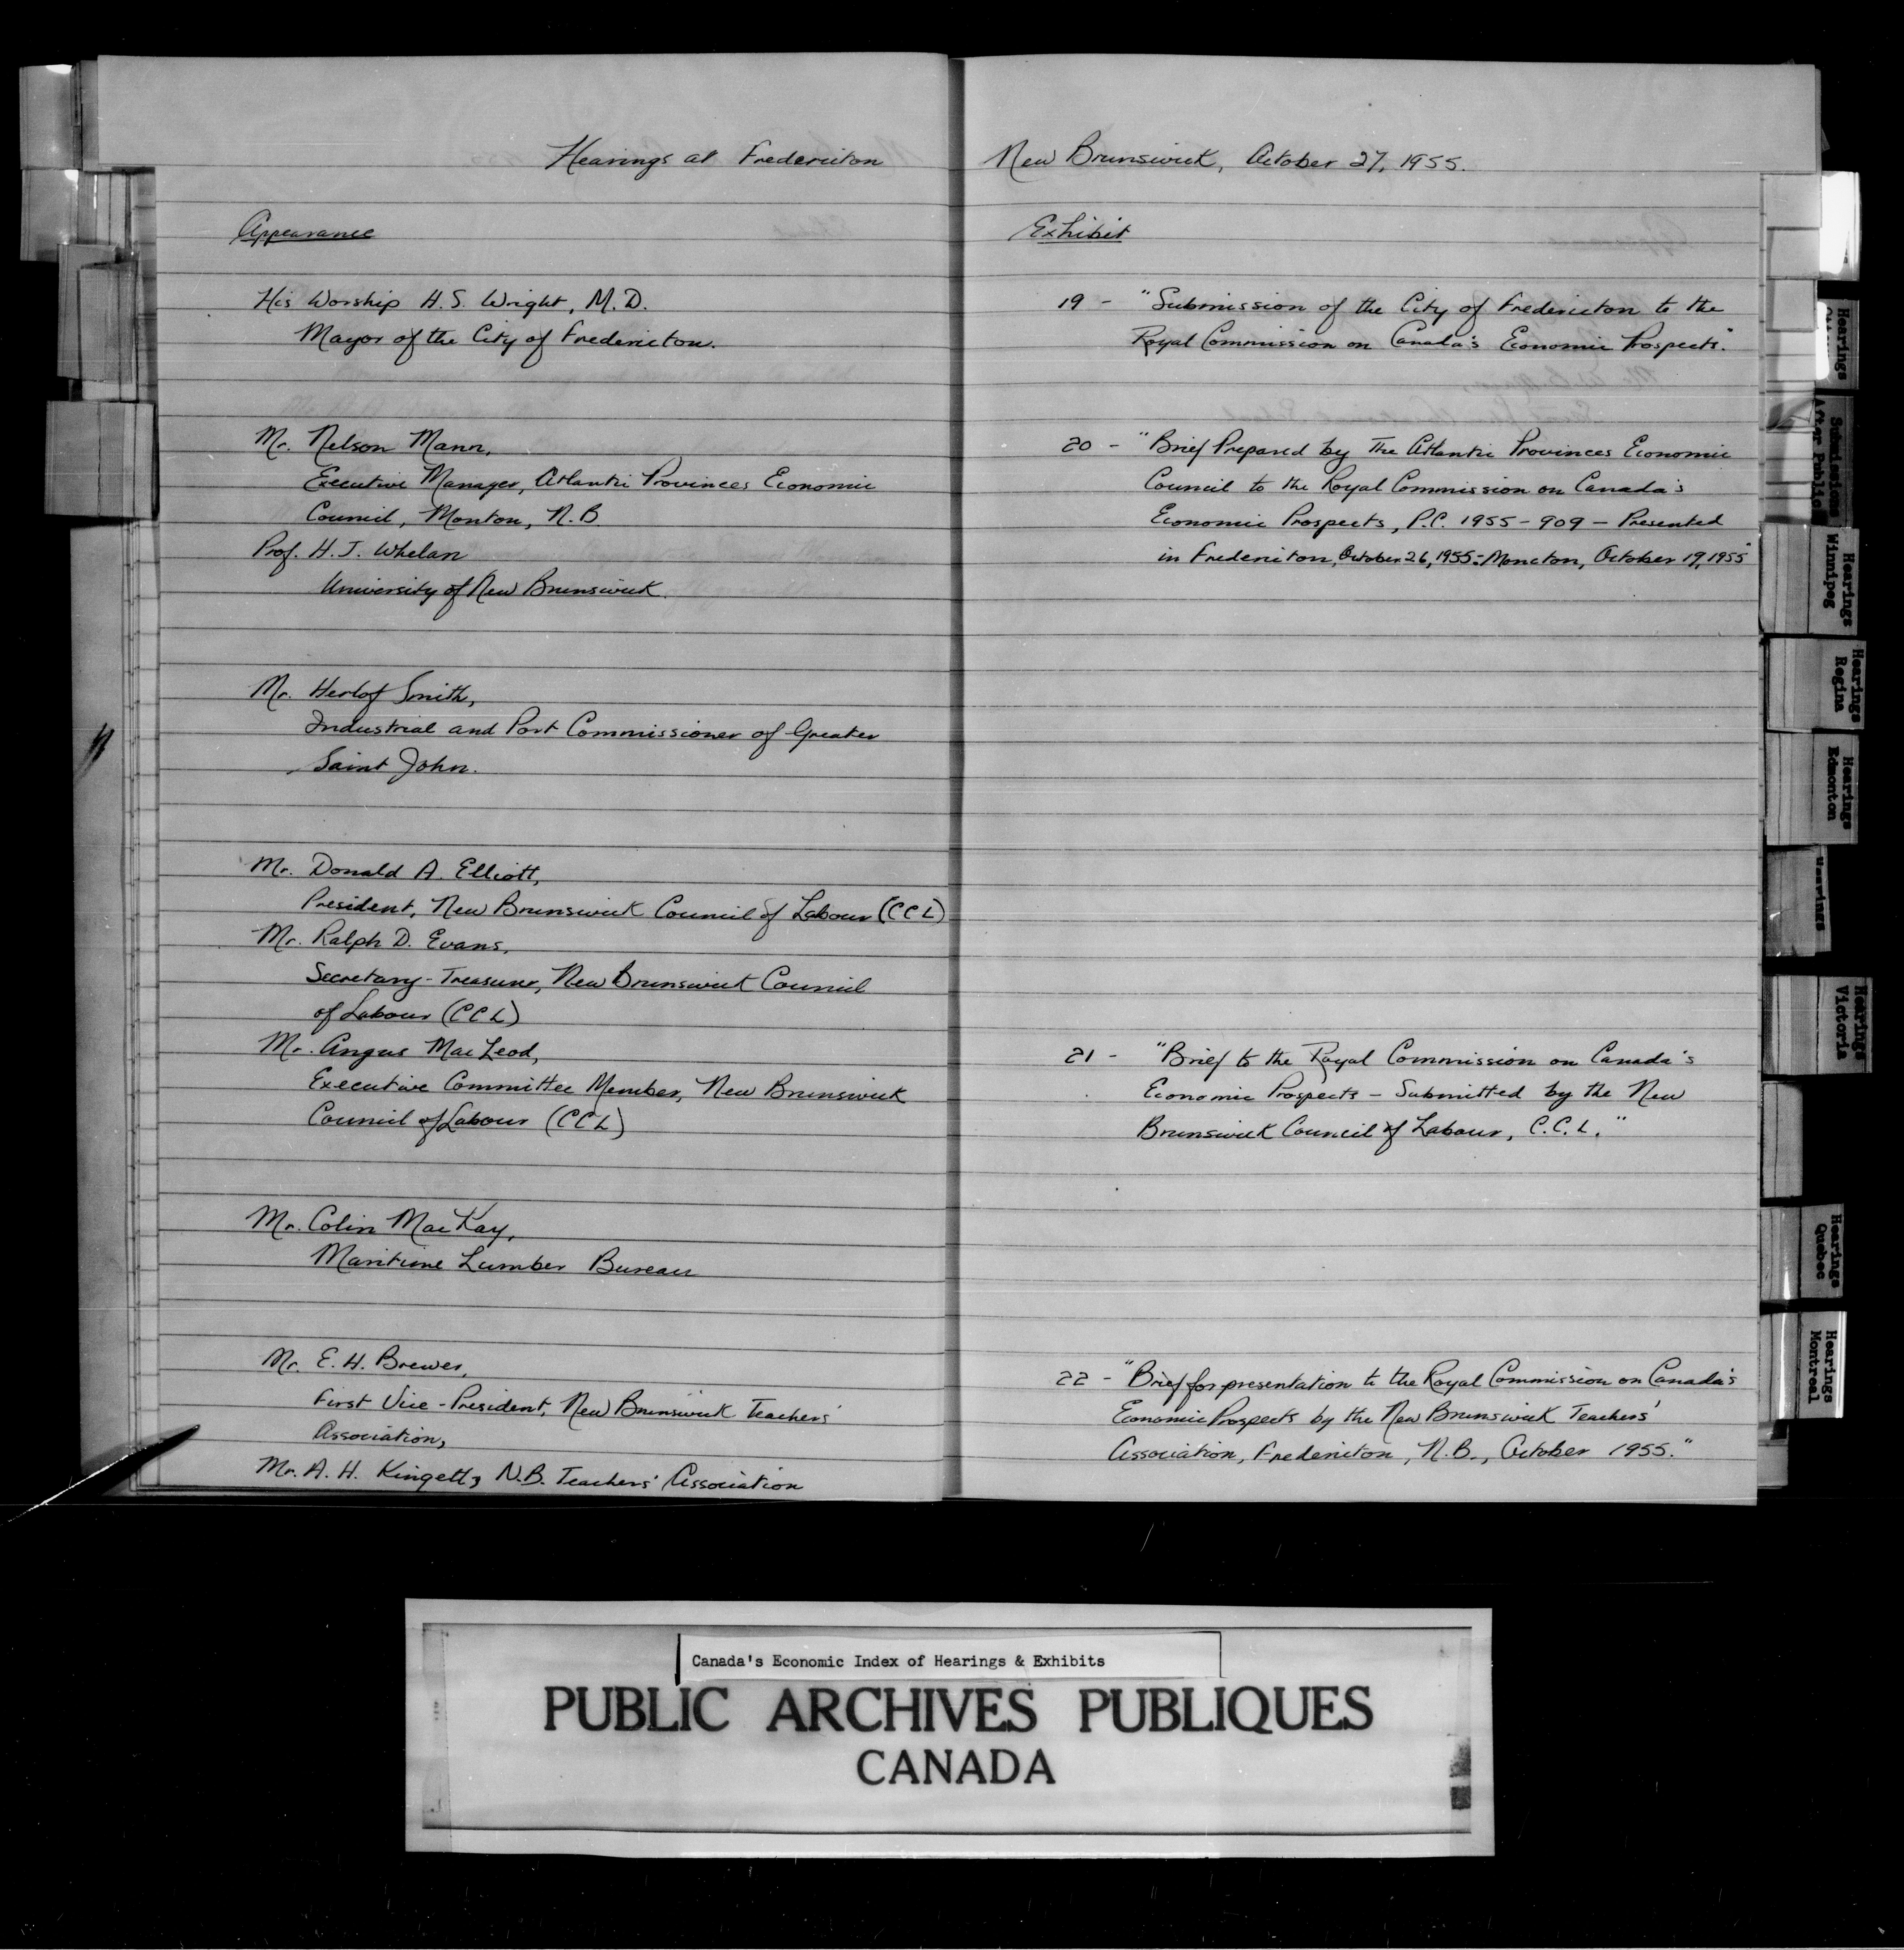 Hearings at Fredericton New Brunswick, October 27, 1955.
Appearance
His Worship H.S. Wright, M.D.
Mayor of the City of Fredericton.
Mr. Nelson Mann,
Executive Manager, Atlantic Provinces Economic
Council, Monton, N.B
Prof. H.J. Whelan
University of New Brunswick.
Mr. Herlof Smith,
Industrial and Port Commissioner of Greater
Saint John.
Mr. Donald A. Elliott,
President, New Brunswick Council of Labour (CCL)
Mr. Ralph D. Evans,
Secretary-Treasurer, New Brunswick Council
of Labour (CCL)
Mr. Angus MacLeod,
Executive Committee Member, New Brunswick
Council of Labour (CCL)
Mr. Colin MacKay,
Maritime Lumber Bureau
Mr. E.H. Brewer,
First Vice-President, New Brunswick Teachers'
Association,
Mr. A.H. Kingett, N.B. Teachers' Association
Exhibit
19 - "Submission of the City of Fredericton to the
Royal Commission on Canada's Economic Prospects."
20 - "Brief Prepared by The Atlantic Provinces Economic
Council to the Royal Commission on Canada's
Economic Prospects, P.C. 1955-909 - Presented
in Fredericton, October 26, 1955 - Moncton, October 19, 1955"
21 - "Brief to the Royal Commission on Canada's
Economic Prospects - Submitted by the New
Brunswick Council of Labour, C.C.L."
22 - "Brief for presentation to the Royal Commission on Canada's
Economic Prospects by the New Brunswick Teachers'
Association, Fredericton, N.B., October 1955."
Hearings
Submissions
After Public
Hearings
Winnipeg
Hearings
Regina
Hearings
Edmonton
Hearings
Hearings
Victoria
Hearings
Quebec
Hearings
Montreal
Canada's Economic Index of Hearings & Exhibits
PUBLIC ARCHIVES PUBLIQUES
CANADA